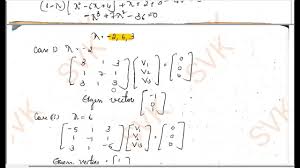 (1-λ)[λ²-6λ+4]+λ+2
-λ³+7λ²-36=0
λ = -2, 6, 3
Case i) λ = -2
[3 1 3
1 7 1
3 1 3] [V1
V2
V3] = [0
0
0]
Eigen vector [-1
0
1]
Case (ii) λ = 6
[-5 1 3
1 -1 1
3 1 -5] [V1
V2
V3] = [0
0
0]
Eigen vector = [1
SVK
SVK
SVK